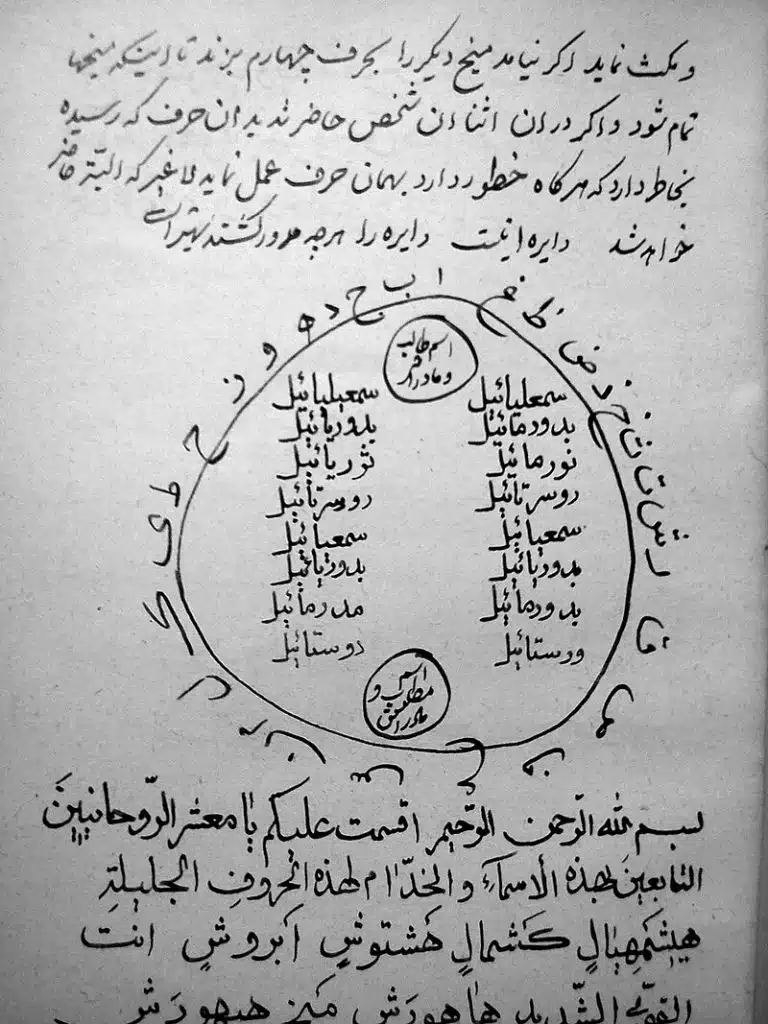 و مکث نماید اکر نیامد میخ دیکر را بحرف چهارم بزند تا اینکه میخها
تمام شود و اکر در ان اثنا ان شخص حاضر شد بد ان حرف که رسیده
بخاطر دارد که هرکاه خطور دارد بهمان حرف عمل نماید لا غیر که البتّه حاضر
خواهد شد دایره اینست دایره را هرچه مدورکشند بهتر است
ا ب ج د ه و ز ح ط ی ک ل م ن س ع ف ص ق ر ش ت ث خ ذ ض ظ غ
اسم طالب
و مادرش
سمعلیائیل سمعیلیائیل
بدودمائیل بدوریائیل
نورمائیل نوریائیل
دوسرتائیل دوسرتائیل
سمعیائیل سمعیائیل
بدودیائیل بدودیائیل
بدودمائیل مدرمائیل
ورستائیل دوستائیل
اسم
مطلوب و
مادرش
بسم الله الرّحمن الرّحیم اقسمت علیکم یا معشر الرّوحانیینَ
التابعینَ لهذه الاسمآءِ و الخدّام لهذه الحروفِ الجلیلةِ
هیشَمهِیالٍ کَشمالٍ هَشتوشٍ اَبروشٍ انت
القویّ الشّدید هاهورَش